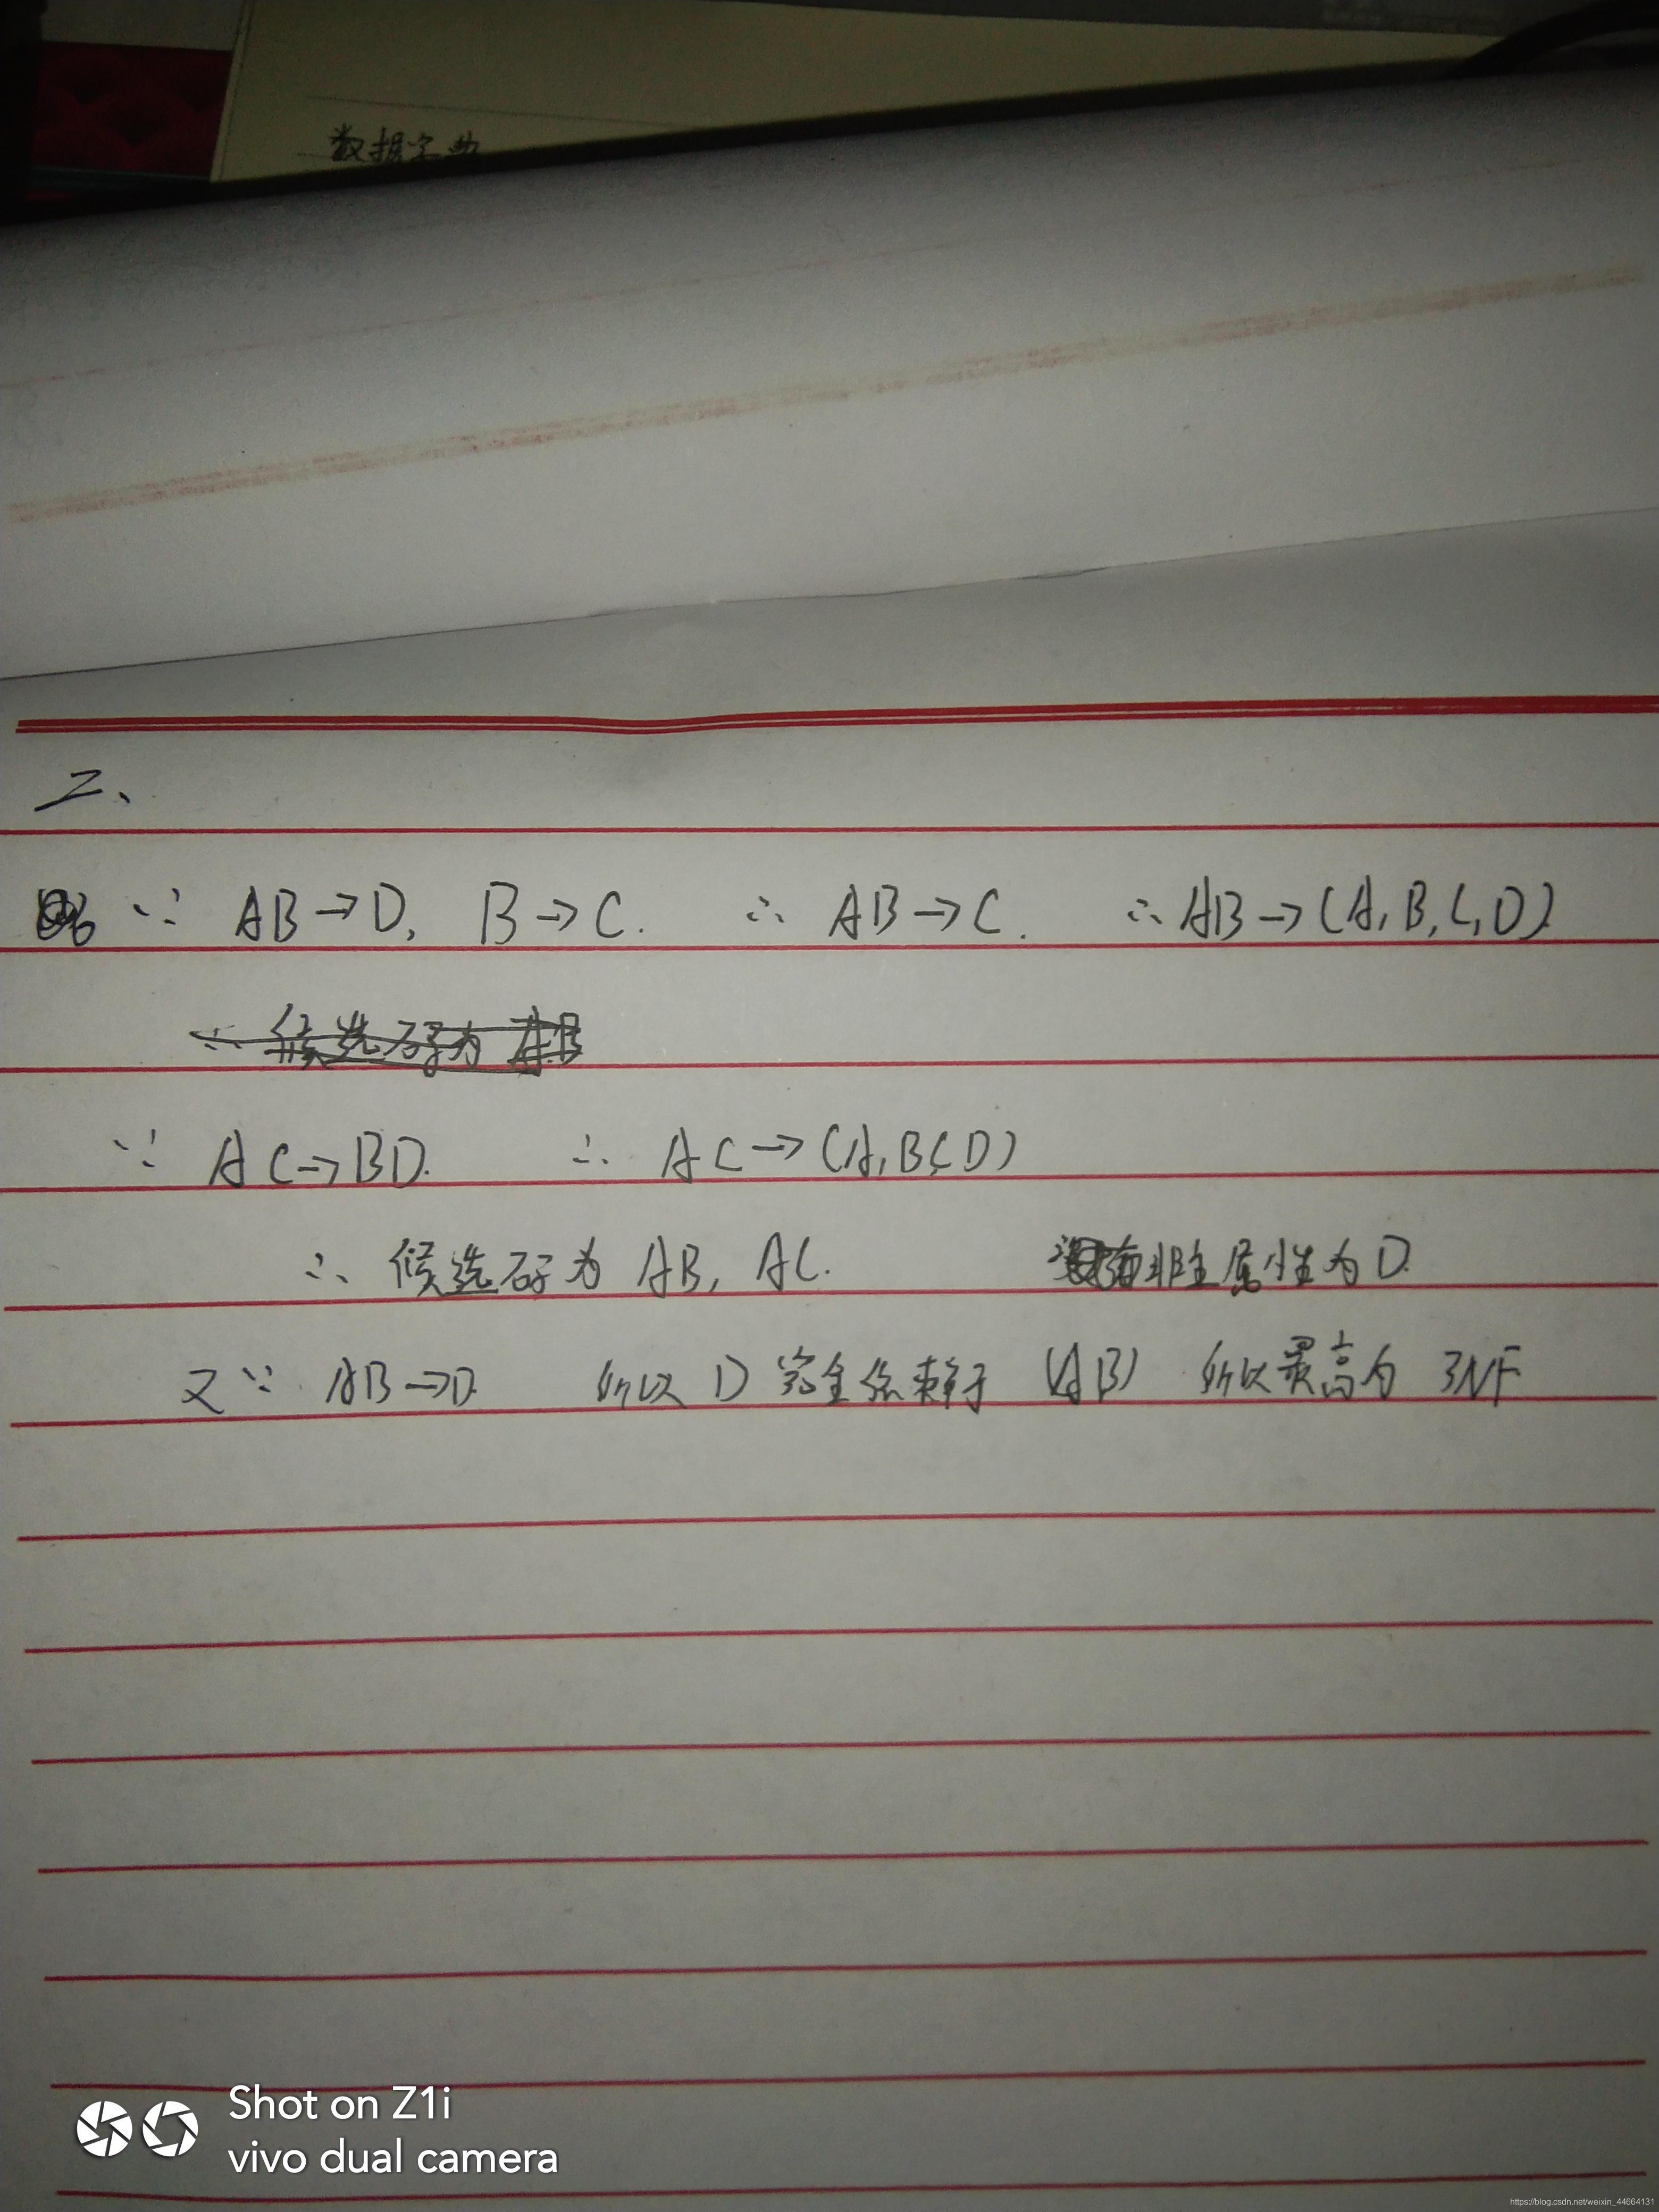 数据字典
二、
∵ AB→D, B→C. ∴ AB→C. ∴ AB→(A,B,C,D)
∴ 候选码为 AB
∵ AC→BD. ∴ AC→(A,BCD)
∴ 候选码为 AB, AC. 非主属性为D.
又∵ AB→D 所以 D 完全依赖于 (AB) 所以最高为 3NF
Shot on Z1i
vivo dual camera
https://blog.csdn.net/weixin_44664131